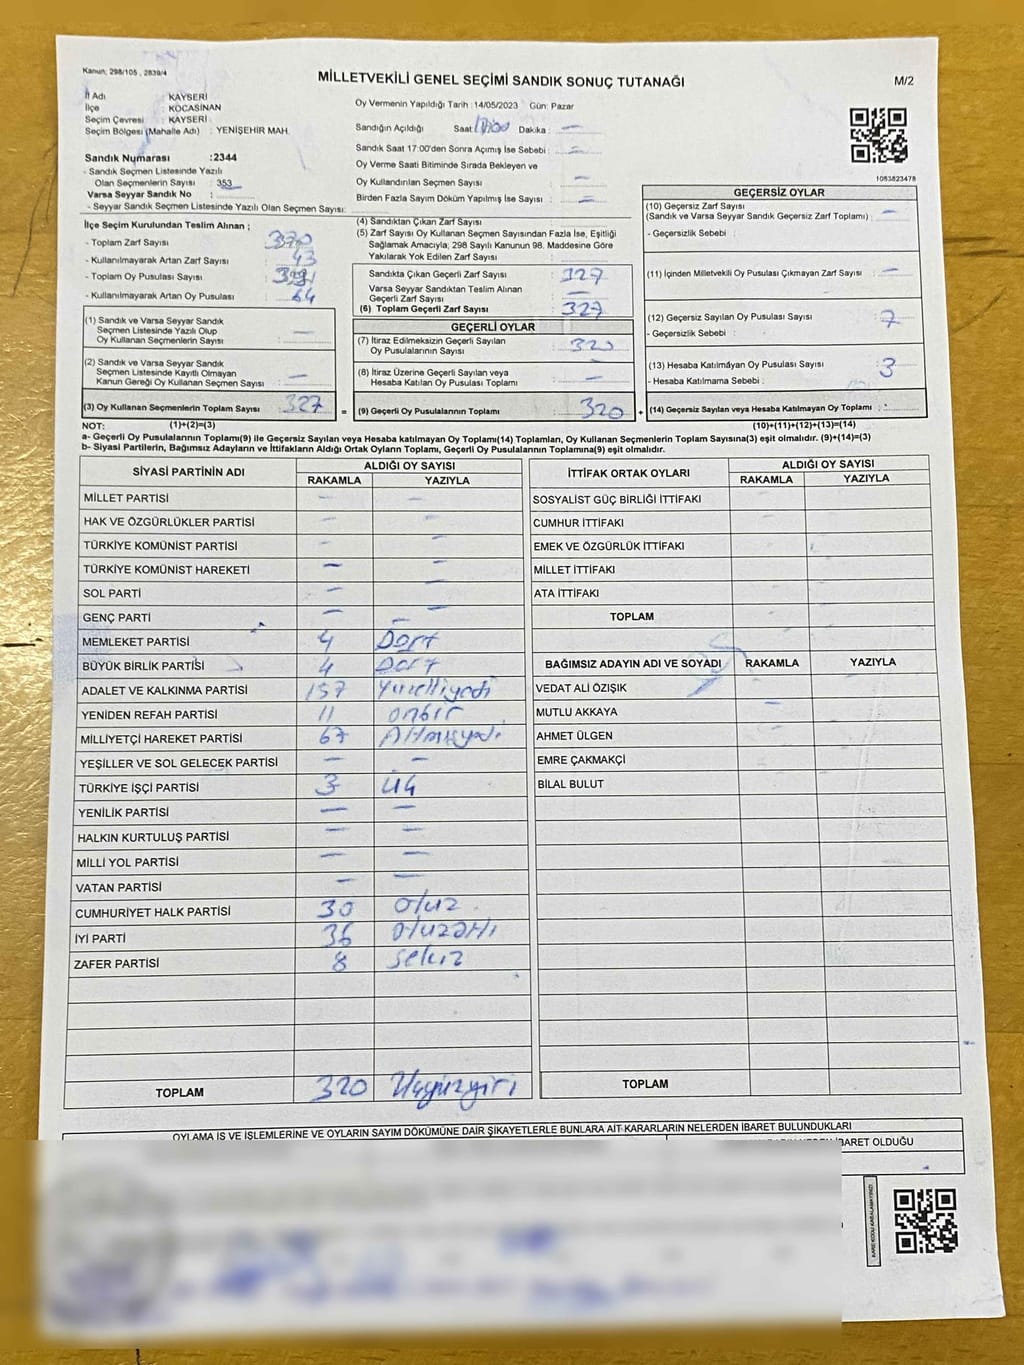 Kanun; 298/105 , 2839/4
MİLLETVEKİLİ GENEL SEÇİMİ SANDIK SONUÇ TUTANAĞI
M/2
İl Adı : KAYSERİ
İlçe : KOCASİNAN
Seçim Çevresi : KAYSERİ
Seçim Bölgesi (Mahalle Adı) : YENİŞEHİR MAH.
Sandık Numarası :2344
- Sandık Seçmen Listesinde Yazılı
Olan Seçmenlerin Sayısı : 353
Varsa Seyyar Sandık No :
- Seyyar Sandık Seçmen Listesinde Yazılı Olan Seçmen Sayısı:
Oy Vermenin Yapıldığı Tarih :14/05/2023 Gün: Pazar
Sandığın Açıldığı Saat: Dakika : —
Sandık Saat 17:00'den Sonra Açımış İse Sebebi : —
Oy Verme Saati Bitiminde Sırada Bekleyen ve
Oy Kullandırılan Seçmen Sayısı —
Birden Fazla Sayım Döküm Yapılmış İse Sayısı : —
1053823478
İlçe Seçim Kurulundan Teslim Alınan ;
- Toplam Zarf Sayısı : 370
- Kullanılmayarak Artan Zarf Sayısı : 43
- Toplam Oy Pusulası Sayısı :
- Kullanılmayarak Artan Oy Pusulası : 64
(1) Sandık ve Varsa Seyyar Sandık
Seçmen Listesinde Yazılı Olup
Oy Kullanan Seçmenlerin Sayısı : —
(2) Sandık ve Varsa Seyyar Sandık
Seçmen Listesinde Kayıtlı Olmayan
Kanun Gereği Oy Kullanan Seçmen Sayısı : —
(3) Oy Kullanan Seçmenlerin Toplam Sayısı : 327
(4) Sandıktan Çıkan Zarf Sayısı
(5) Zarf Sayısı Oy Kullanan Seçmen Sayısından Fazla İse, Eşitliği
Sağlamak Amacıyla; 298 Sayılı Kanunun 98. Maddesine Göre
Yakılarak Yok Edilen Zarf Sayısı :
Sandıkta Çıkan Geçerli Zarf Sayısı : 327
Varsa Seyyar Sandıktan Teslim Alınan
Geçerli Zarf Sayısı : —
(6) Toplam Geçerli Zarf Sayısı : 327
GEÇERLİ OYLAR
(7) İtiraz Edilmeksizin Geçerli Sayılan
Oy Pusulalarının Sayısı : 320
(8) İtiraz Üzerine Geçerli Sayılan veya
Hesaba Katılan Oy Pusulası Toplamı : —
= (9) Geçerli Oy Pusulalarının Toplamı : 320
GEÇERSİZ OYLAR
(10) Geçersiz Zarf Sayısı
(Sandık ve Varsa Seyyar Sandık Geçersiz Zarf Toplamı) : —
- Geçersizlik Sebebi :
(11) İçinden Milletvekili Oy Pusulası Çıkmayan Zarf Sayısı : —
(12) Geçersiz Sayılan Oy Pusulası Sayısı : 7
- Geçersizlik Sebebi :
(13) Hesaba Katılmayan Oy Pusulası Sayısı : 3
- Hesaba Katılmama Sebebi :
+ (14) Geçersiz Sayılan veya Hesaba Katılmayan Oy Toplamı :
NOT: (1)+(2)=(3) (10)+(11)+(12)+(13)=(14)
a- Geçerli Oy Pusulalarının Toplamı(9) ile Geçersiz Sayılan veya Hesaba katılmayan Oy Toplamı(14) Toplamları, Oy Kullanan Seçmenlerin Toplam Sayısına(3) eşit olmalıdır. (9)+(14)=(3)
b- Siyasi Partilerin, Bağımsız Adayların ve İttifakların Aldığı Ortak Oyların Toplamı, Geçerli Oy Pusulalarının Toplamına(9) eşit olmalıdır.
SİYASİ PARTİNİN ADI ALDIĞI OY SAYISI
RAKAMLA YAZIYLA
MİLLET PARTİSİ — —
HAK VE ÖZGÜRLÜKLER PARTİSİ — —
TÜRKİYE KOMÜNİST PARTİSİ — —
TÜRKİYE KOMÜNİST HAREKETİ — —
SOL PARTİ — —
GENÇ PARTİ — —
MEMLEKET PARTİSİ 4 Dört
BÜYÜK BİRLİK PARTİSİ 4 Dört
ADALET VE KALKINMA PARTİSİ 157 Yüzelliyedi
YENİDEN REFAH PARTİSİ 11 onbir
MİLLİYETÇİ HAREKET PARTİSİ 67 Altmışyedi
YEŞİLLER VE SOL GELECEK PARTİSİ — —
TÜRKİYE İŞÇİ PARTİSİ 3 üç
YENİLİK PARTİSİ — —
HALKIN KURTULUŞ PARTİSİ — —
MİLLİ YOL PARTİSİ — —
VATAN PARTİSİ — —
CUMHURİYET HALK PARTİSİ 30 otuz
İYİ PARTİ 36 otuzaltı
ZAFER PARTİSİ 8 sekiz
TOPLAM 320 Üçyüzyirmi
İTTİFAK ORTAK OYLARI ALDIĞI OY SAYISI
RAKAMLA YAZIYLA
SOSYALİST GÜÇ BİRLİĞİ İTTİFAKI
CUMHUR İTTİFAKI
EMEK VE ÖZGÜRLÜK İTTİFAKI
MİLLET İTTİFAKI
ATA İTTİFAKI
TOPLAM
BAĞIMSIZ ADAYIN ADI VE SOYADI RAKAMLA YAZIYLA
VEDAT ALİ ÖZIŞIK
MUTLU AKKAYA —
AHMET ÜLGEN —
EMRE ÇAKMAKÇİ
BİLAL BULUT
TOPLAM
OYLAMA İŞ VE İŞLEMLERİNE VE OYLARIN SAYIM DÖKÜMÜNE DAİR ŞİKAYETLERLE BUNLARA AİT KARARLARIN NELERDEN İBARET BULUNDUKLARI
İBARET OLDUĞU
KARE KODU KARALAMAYINIZ!